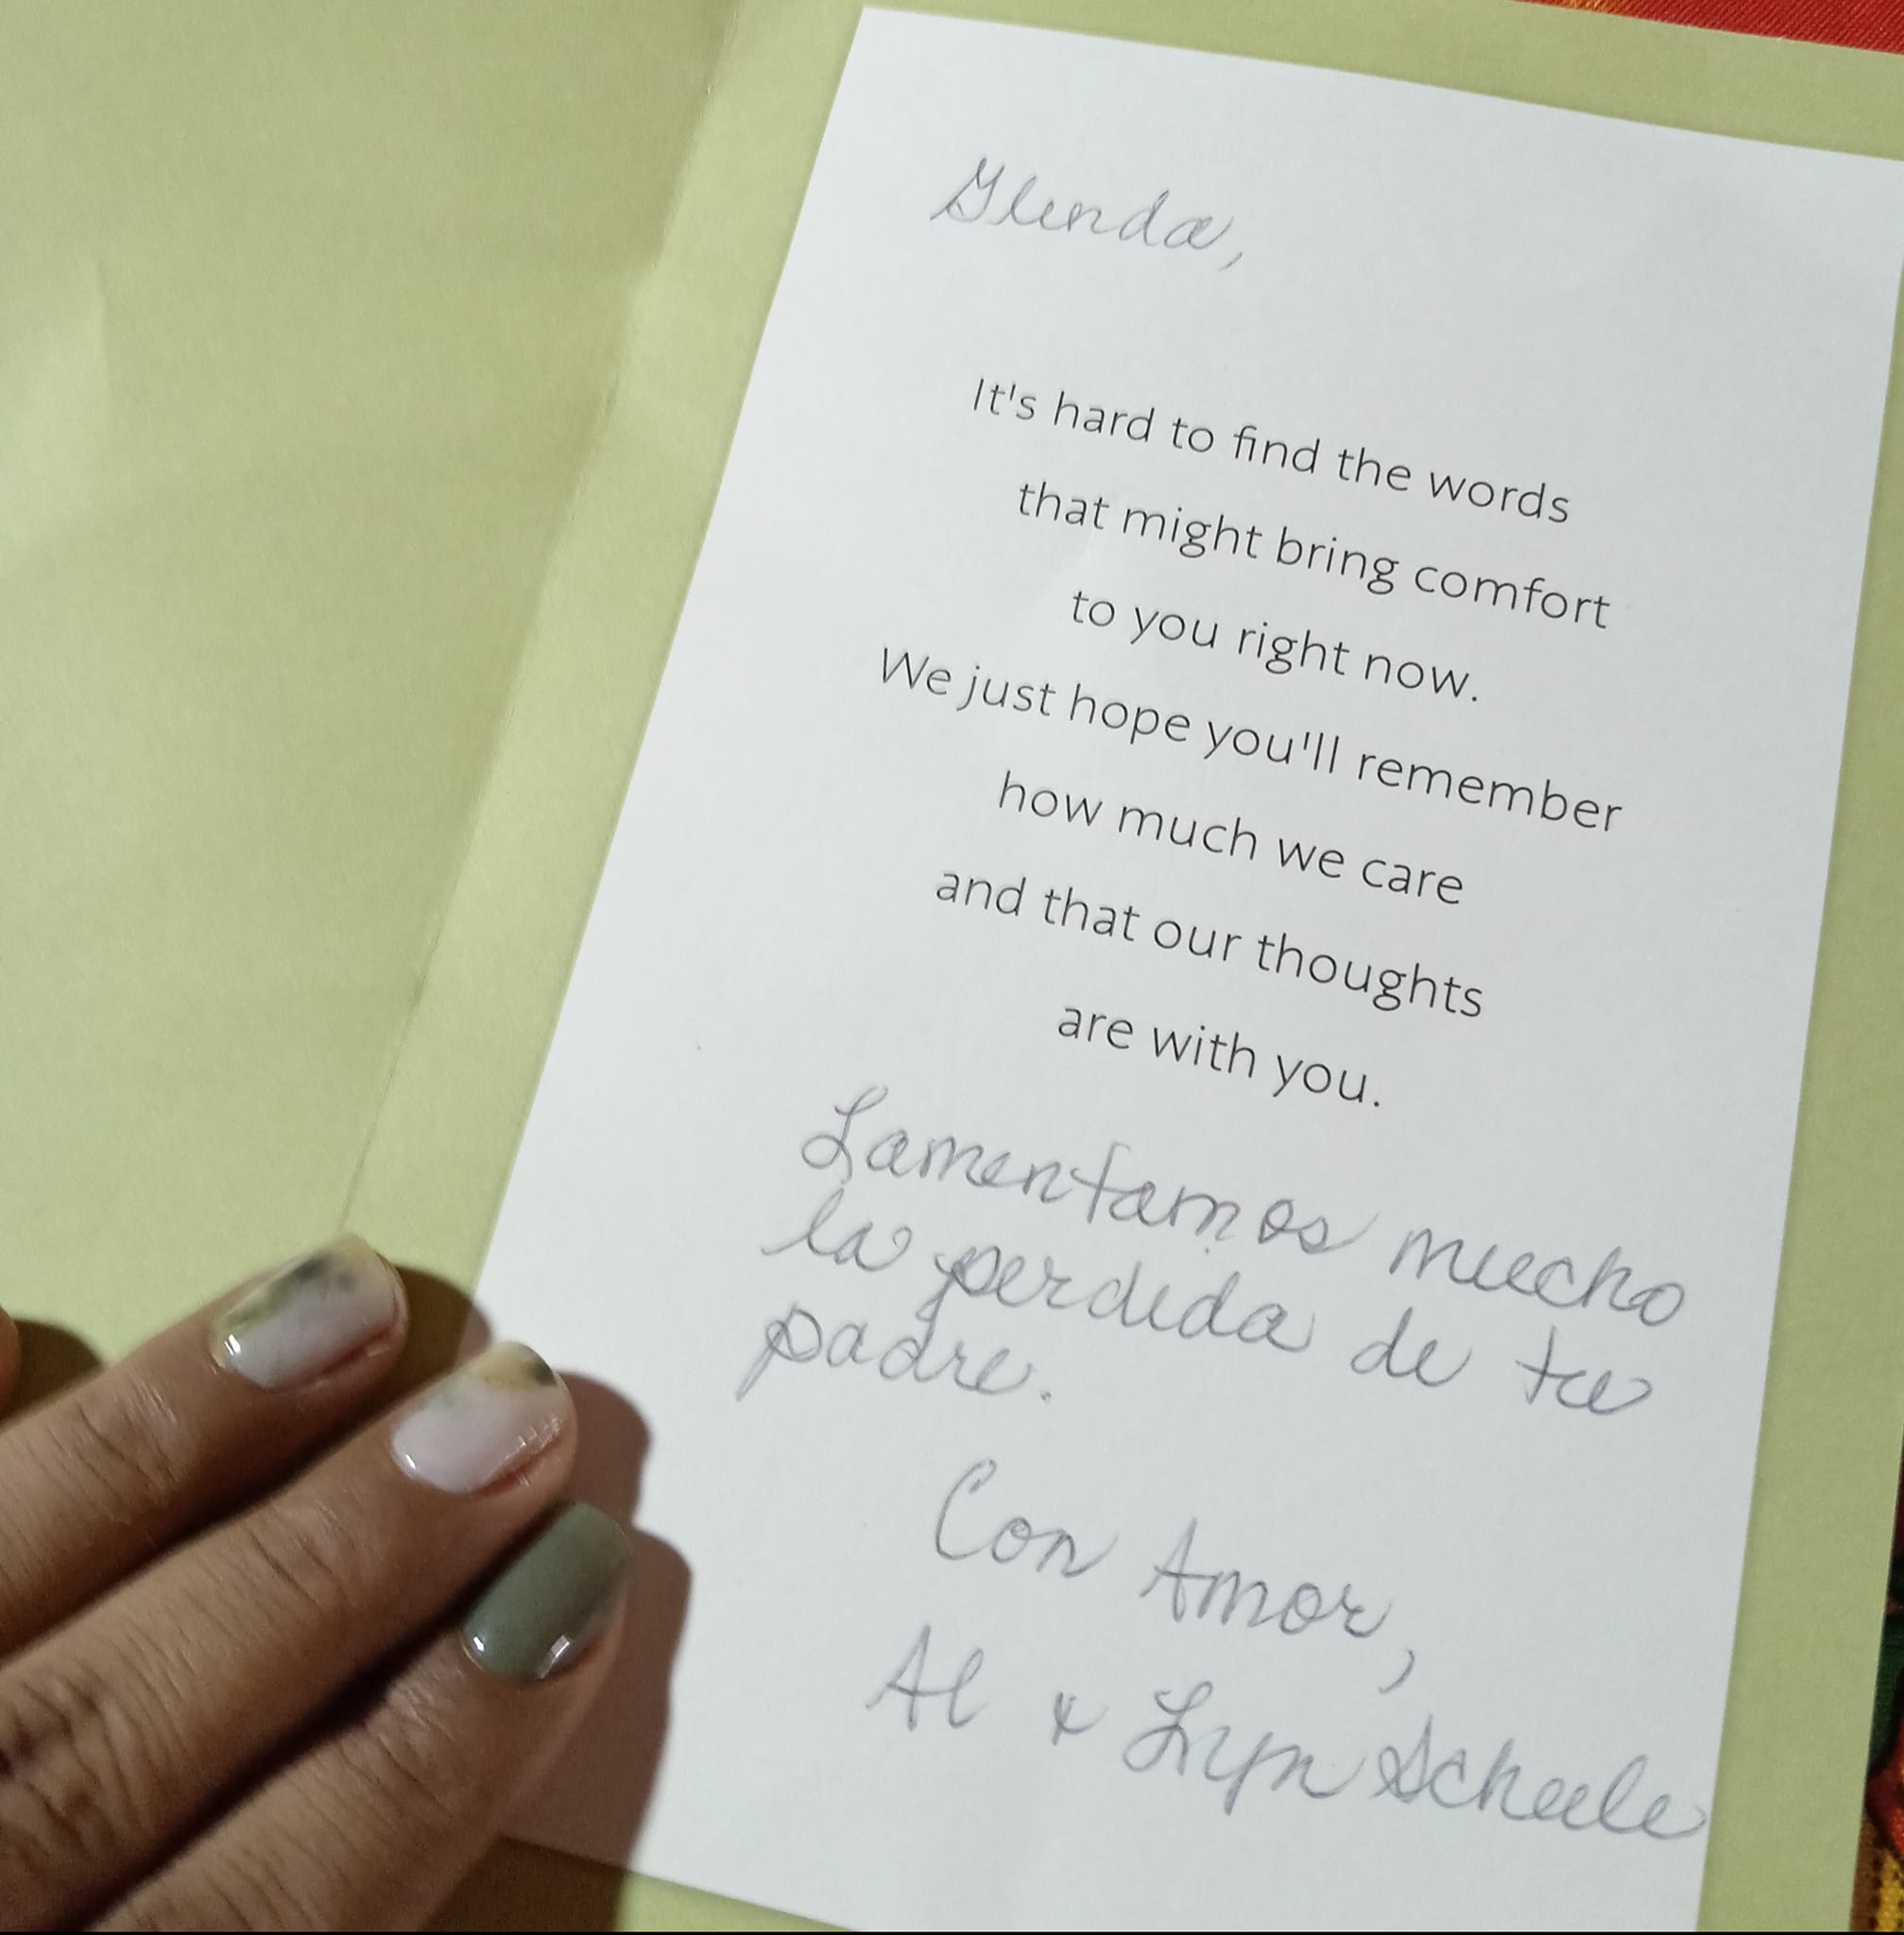 Glenda,
It's hard to find the words
that might bring comfort
to you right now.
We just hope you'll remember
how much we care
and that our thoughts
are with you.
Lamentamos mucho
la perdida de tu
padre.
Con Amor,
Al & Lyn Scheele